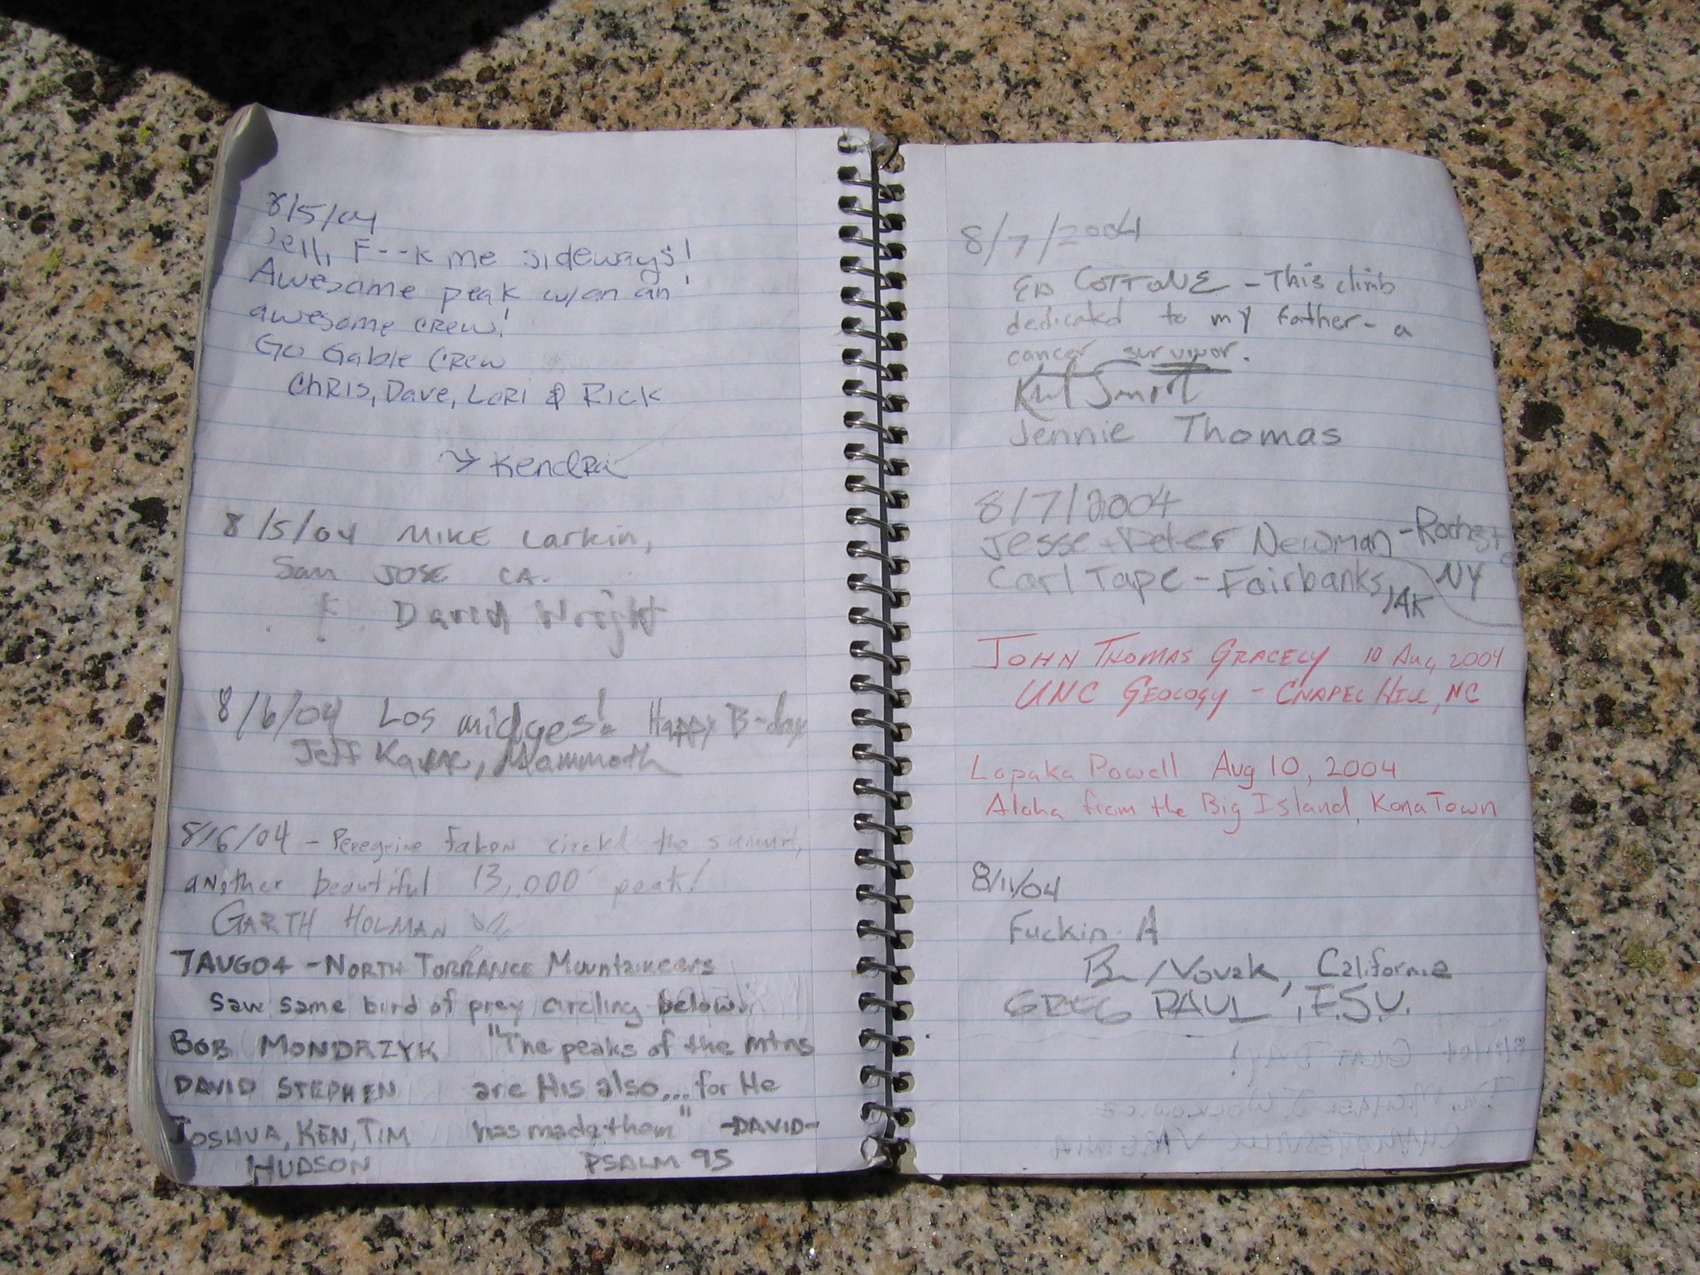 8/5/04
Jell, F--k me sideways!
Awesome peak w/an an
awesome crew!
Go Gable Crew
Chris, Dave, Lori & Rick
→ Kendra
8/5/04 MIKE Larkin,
San JOSE CA.
David Wright
8/6/04 Los midges! Happy B-day
Jeff, Mammoth
8/6/04 - Peregrine falcon circled the summit,
another beautiful 13,000' peak!
GARTH HOLMAN
7AUG04 - NORTH TORRANCE Mountaineers
saw same bird of prey circling below.
BOB MONDRZYK "The peaks of the mtns
DAVID STEPHEN are His also... for He
JOSHUA, KEN, TIM has made them" -DAVID-
HUDSON PSALM 95
8/7/2004
ED COTTONE - This climb
dedicated to my father - a
cancer survivor.
Jennie Thomas
8/7/2004
Jesse + Peter Newman - Rochester
NY
Carl Tape - Fairbanks, AK
JOHN THOMAS GRACELY 10 Aug, 2004
UNC GEOLOGY - CHAPEL HILL, NC
Lapaka Powell Aug 10, 2004
Aloha from the Big Island, Kona Town
8/11/04
Fuckin A
Novak, California
GREG PAUL, F.S.U.